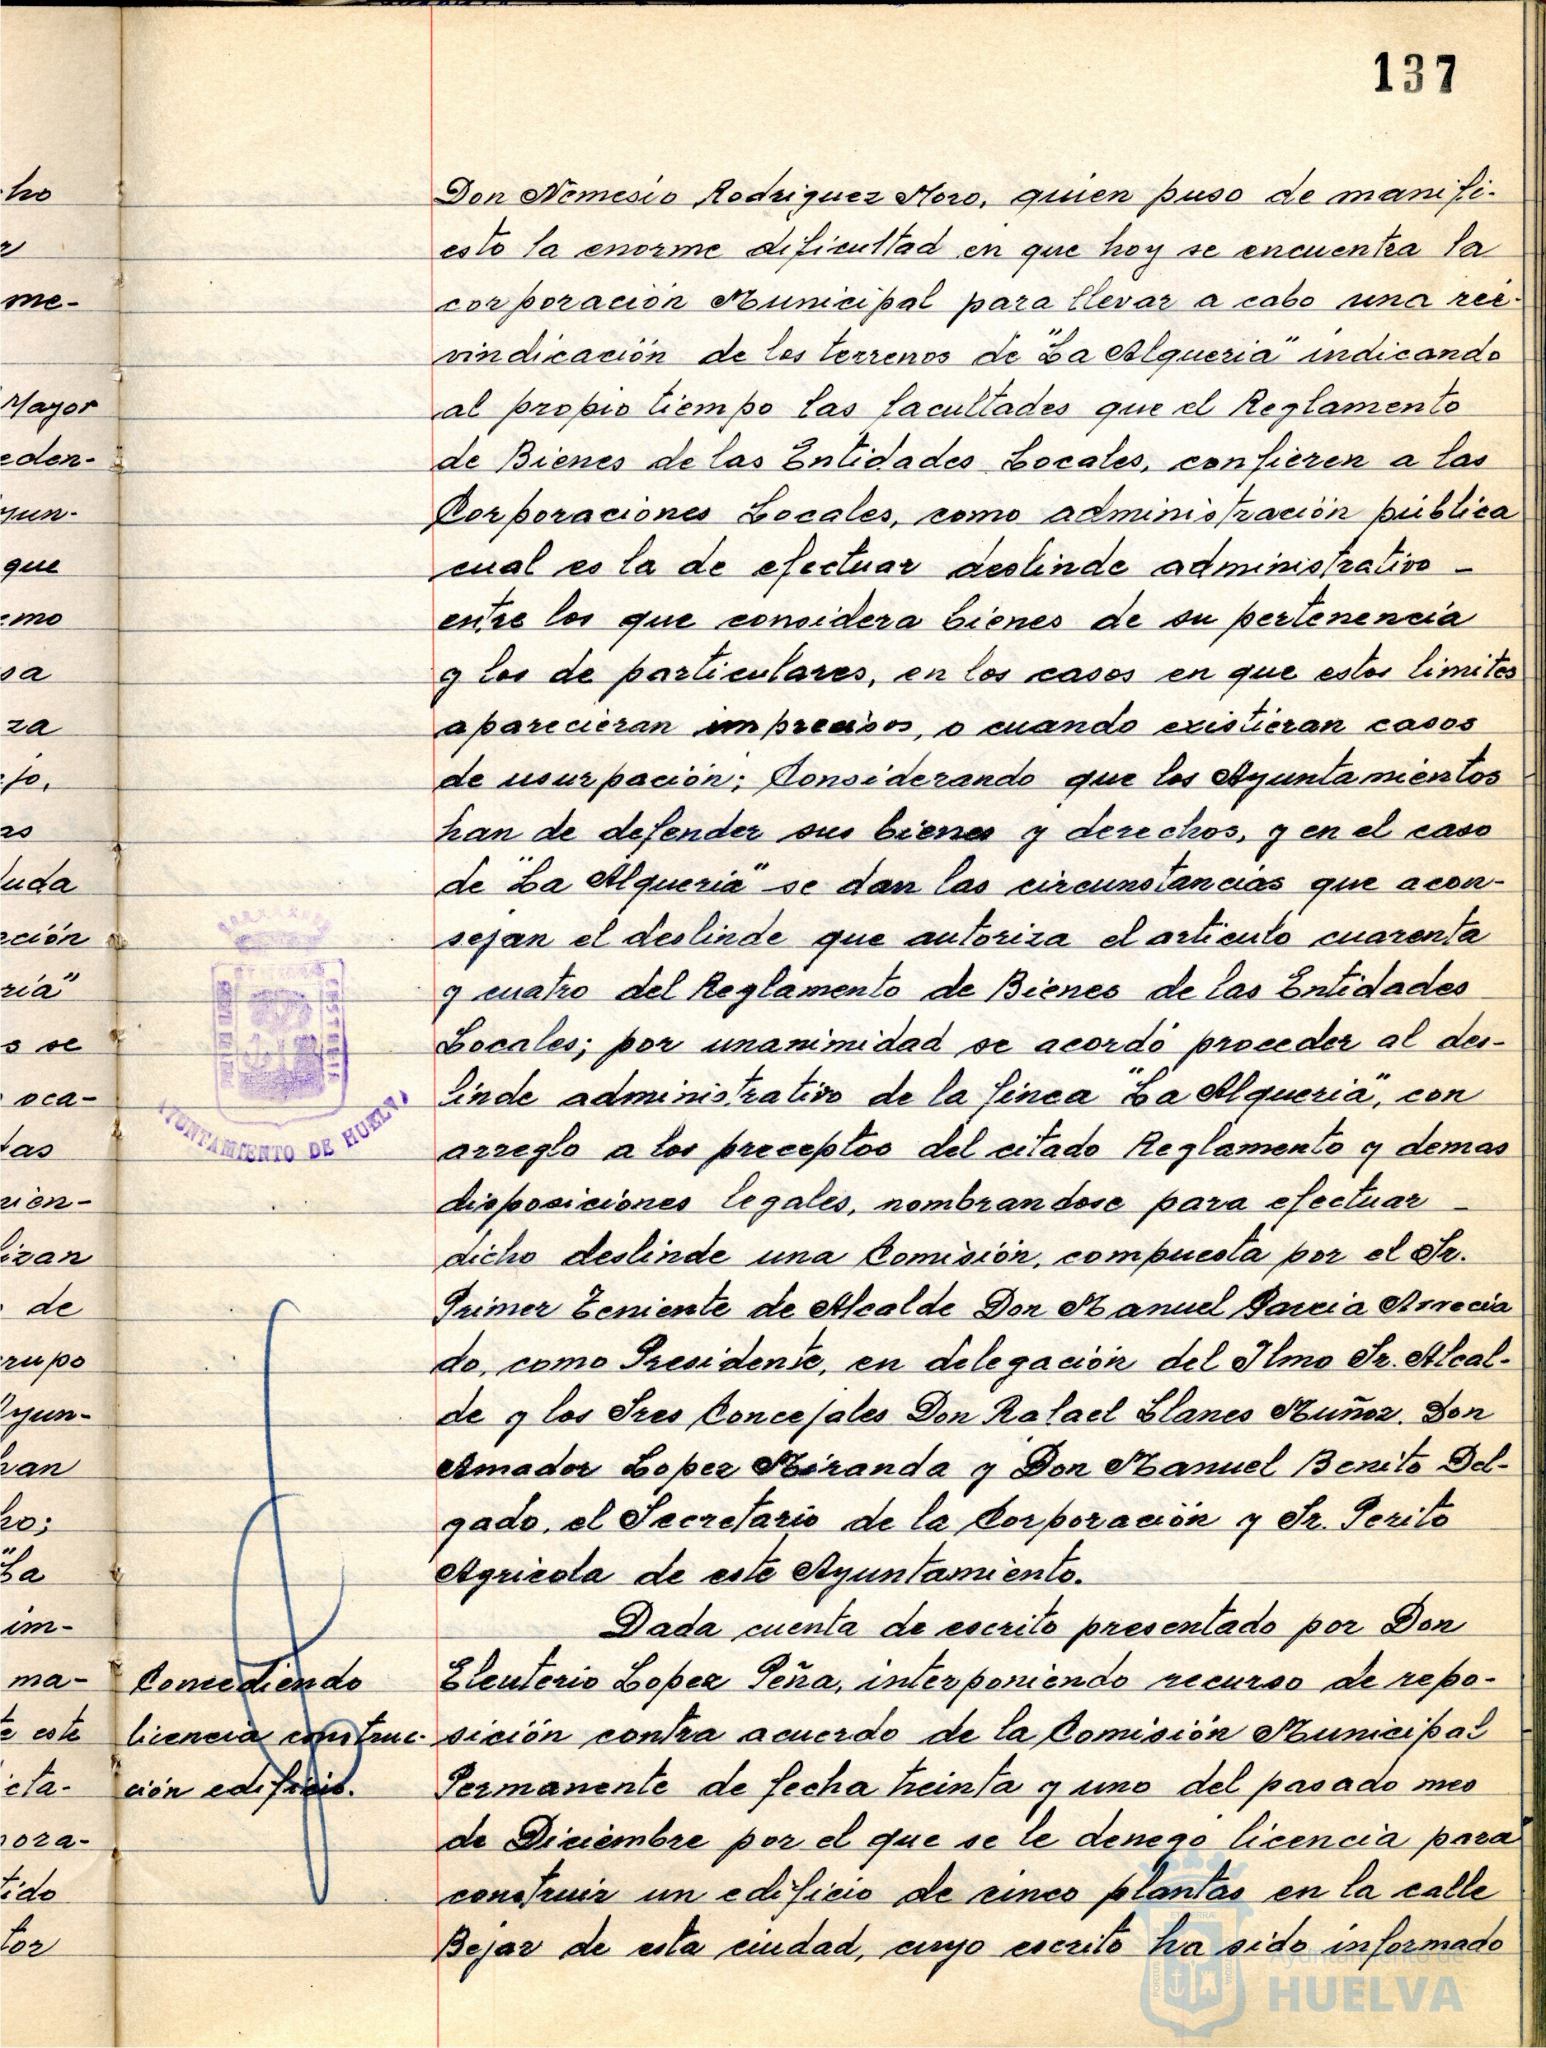 137
Don Nemesio Rodriguez Moro, quien puso de manifi-
esto la enorme dificultad en que hoy se encuentra la
corporación Municipal para llevar a cabo una rei-
vindicación de los terrenos de "La Alqueria" indicando
al propio tiempo las facultades que el Reglamento
de Bienes de las Entidades Locales, confieren a las
Corporaciones Locales, como administración pública
cual es la de efectuar deslinde administrativo -
entre los que considera bienes de su pertenencia
y los de particulares, en los casos en que estos limites
aparecieran imprecisos, o cuando existieran casos
de usurpación; Considerando que los Ayuntamientos
han de defender sus bienes y derechos, y en el caso
de "La Alqueria" se dan las circunstancias que acon-
sejan el deslinde que autoriza el articulo cuarenta
y cuatro del Reglamento de Bienes de las Entidades
Locales; por unanimidad se acordó proceder al des-
linde administrativo de la finca "La Alqueria", con
arreglo a los preceptos del citado Reglamento y demas
disposiciones legales, nombrandose para efectuar -
dicho deslinde una Comisión, compuesta por el Sr.
Primer Teniente de Alcalde Don Manuel Garcia Arrecia
do, como Presidente, en delegación del Ilmo Sr. Alcal-
de y los Sres Concejales Don Rafael Llanes Muñoz, Don
Amador Lopez Miranda y Don Manuel Benito Del-
gado, el Secretario de la Corporación y Sr. Perito
Agricola de este Ayuntamiento.
Dada cuenta de escrito presentado por Don
Eleuterio Lopez Peña, interponiendo recurso de repo-
sición contra acuerdo de la Comisión Municipal
Permanente de fecha treinta y uno del pasado mes
de Diciembre por el que se le denego licencia para
construir un edificio de cinco plantas en la calle
Bejar de esta ciudad, cuyo escrito ha sido informado
Concediendo
licencia construc-
ción edificio.
AYUNTAMIENTO DE HUELVA
cho
me-
Mayor
eden-
yun-
que
emo
sa
za
ejo,
as
duda
ación
ria"
s se
oca-
das
rien-
lizan
de
rupo
Ayun-
han
ho;
"La
im-
ma-
te este
icta-
pora-
tido
tor
Ayuntamiento de
HUELVA